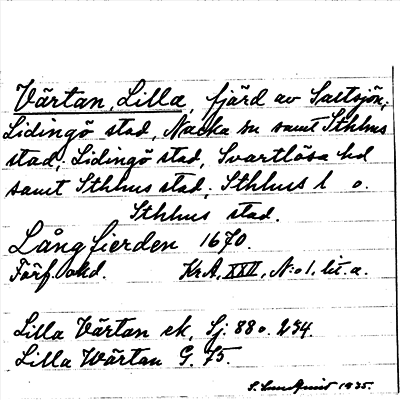 Värtan, Lilla, fjärd av Saltsjön;
Lidingö stad, Nacka sn samt Sthlms
stad; Lidingö stad, Svartlösa hd
samt Sthlms stad; Sthlms l o.
Sthlms stad.
Lång fierden 1670.
Förf. okd. KrA, XXII, N:o 1, lit. a.
Lilla Värtan ek, Sj: 88 o. 234.
Lilla Wärtan G. 75.
1935.